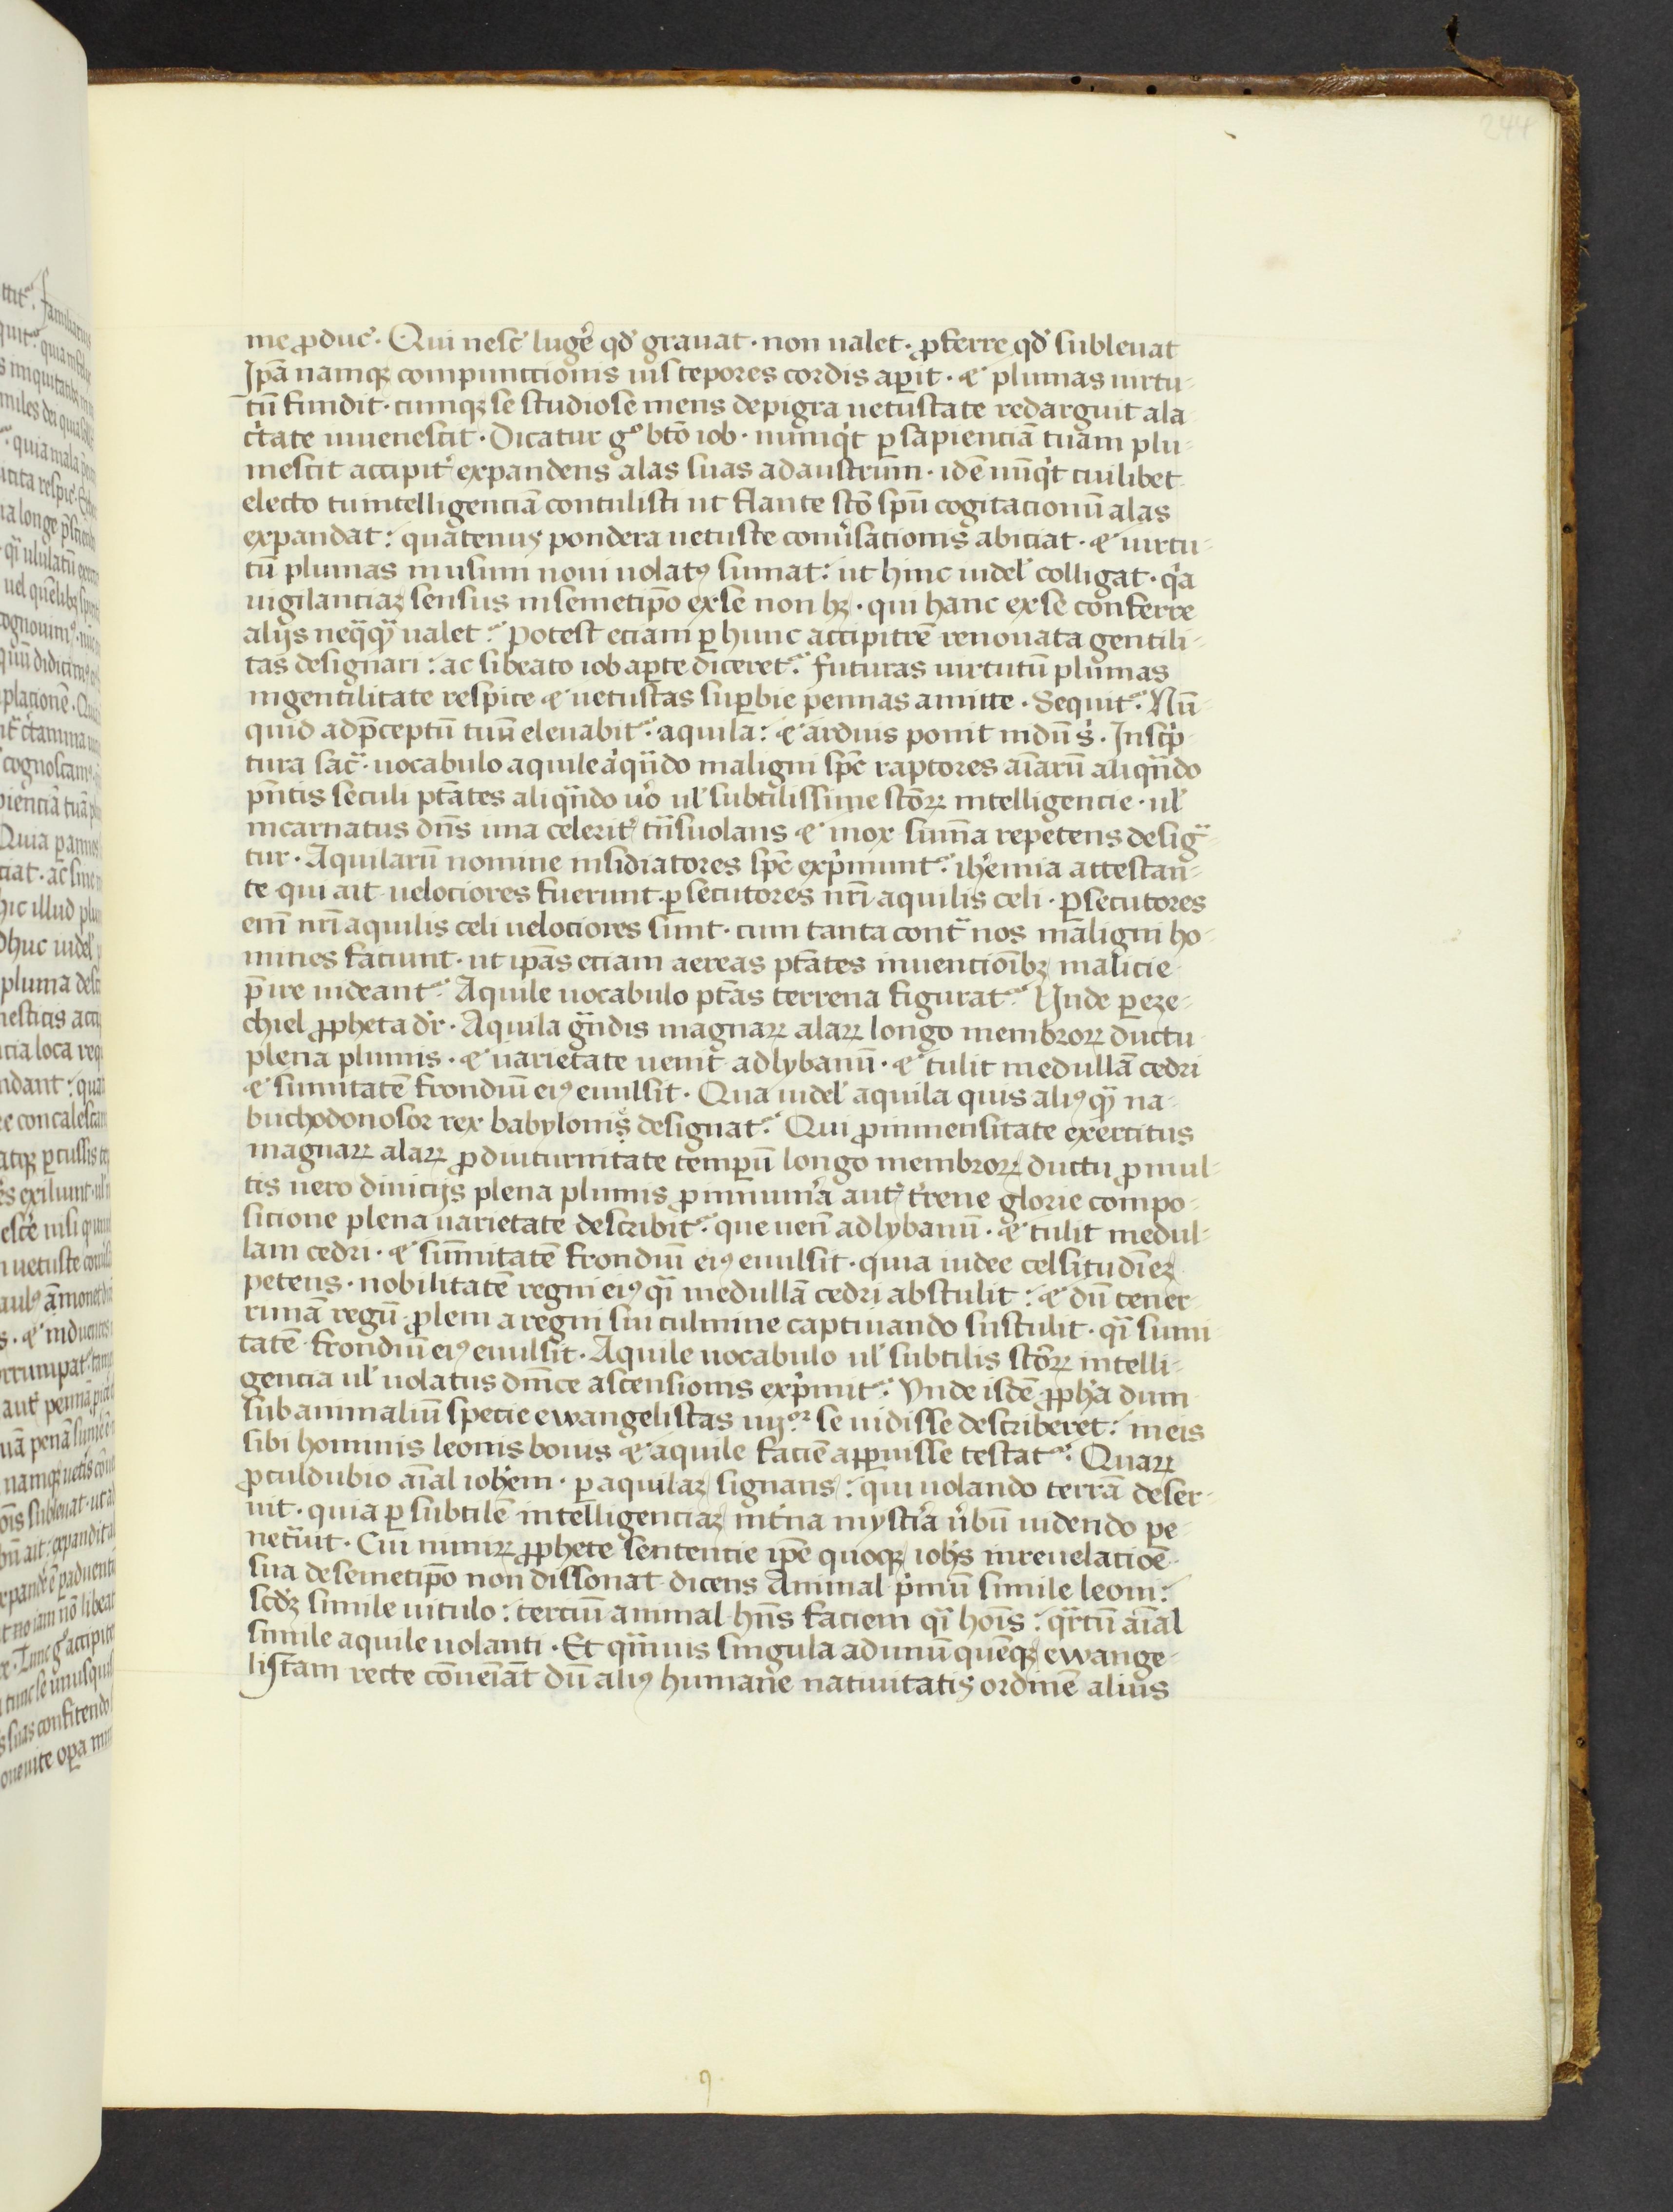 244
me ꝓduc̉. Qui nesc̉ lugẻ qđ grauat. non ualet. ꝓferre qđ subleuat
Ip̃a namqꝫ compunctionis uis tepores cordis aꝑit. & plumas uirtu-
tũ fundit. cumqꝫ se studiose mens de pigra uetustate redarguit ala
c̉tate iuuenescit. Dicatur gͦ btõ iob. nũnqͥt ꝑ sapienciã tuam plu-
mescit accipit̉ expandens alas suas ad austrum. idẽ nũqͥt cuilibet
electo tu intelligenciã contulisti ut flante scõ spũ cogitacionũ alas
expandat: quatenus pondera uetuste conũsacionis abiciat. & uirtu-
tũ plumas in usum noui uolatꝰ sumat: ut hinc uidelꝫ colligat. qͥa
uigilanciaꝫ sensus in semetip̃o ex se non hꝫ. qui hanc ex se conferre
alijs neq̃q̃ ualet. Potest eciam ꝑ hunc accipitrẽ renouata gentili-
tas designari: ac si beato iob aꝑte diceret᷑. Futuras uirtutũ plumas
in gentilitate respice & uetustas suꝑbie pennas amitte. Sequit᷑. Nũ-
quid ad p̃ceptũ tuũ eleuabit᷑ aquila: & in arduis ponit nidũ s̉. In scͥp-
tura sac̃. uocabulo aquile aͥq̃ndo maligni sp̃c raptores aĩarũ aliq̃ndo
pñtis seculi ptãtes aliq̃ndo uͦo ul̉ subtilissime scõꝝ intelligencie. ul̉
incarnatus dñs ima celerit̉ tñsuolans & mox sum̃a repetens desig̃-
tur. Aquilarũ nomine insidiatores sp̃c expͥmunt᷑. ih̉emia attestan-
te qui ait uelociores fuerunt ꝑsecutores nrĩ aquilis celi. ꝑsecutores
enĩ nrĩ aquilis celi uelociores sunt. cum tanta cont̃ nos maligni ho-
mines faciunt. ut ip̃as eciam aereas ptãtes inuencioĩbꝫ malicie
p̃ire uideant᷑. Aquile uocabulo ptãs terrena figurat᷑. Unde ꝑ eze-
chiel ꝓpheta dr̉. Aquila g̃ndis magnaꝝ alaꝝ longo membroꝝ ductu
plena plumis. & uarietate uenit ad lybanũ. & tulit medullã cedri
& summitatẽ frondiũ eiꝰ euulsit. Qua uidelꝫ aquila quis aliꝰ q̃ na-
buchodonosor rex babylonis designat᷑. Qui ꝓ inmensitate exercitus
magnaꝝ alaꝝ ꝓ diuturnitate tempꝝ longo membroꝝ ductu ꝓ mul-
tis uero diuicijs plena plumis ꝓ innum̉a aut̉ t̉rene glorie compo-
sicione plena uarietate describit᷑. que ueñ ad lybanũ. & tulit medul-
lam cedri. & sum̃itatẽ frondiũ eiꝰ euulsit. quia iudee celsitudĩeꝫ
petens. nobilitatẽ regni eiꝰ q̃ medullã cedri abstulit: & dũ tener-
rimã regũ ꝓlem a regni sui culmine captiuando sustulit. q̃ sumi-
tatẽ frondiũ eiꝰ euulsit. Aquile uocabulo ul̉ subtilis scõꝝ intelli-
gencia ul̉ uolatus dñice ascensionis expͥmit᷑. Vnde isdẽ ꝓph̉a dum
sub animaliũ specie ewangelistas iiijᵒʳ se uidisse describeret: in eis
sibi hominis leonis bouis & aquile faciẽ apꝑuisse testat᷑. Quaꝝ
ꝓculdubio aĩal ioh̃em. ꝑ aquilaꝫ signans: qui uolando terrã deser-
uit. quia ꝑ subtilẽ intelligenciaꝫ int̉na myst̉a ũbũ uidendo pe-
net̃uit. Cui nimiꝝ ꝓphete sentencie ip̃e quoqꝫ ioh̃s in reuelatiõe
sua de semetip̃o non dissonat dicens Animal pͥmũ simile leoni:
scd̉ꝫ simile uitulo: terciũ animal hñs faciem q̃ hoĩs: q̃rtũ aĩal
simile aquile uolanti. Et q̃muis singula ad unũ quẽqꝫ ewange-
listam recte cõueĩat dũ aliꝰ humane natiuitatis ordinẽ alius